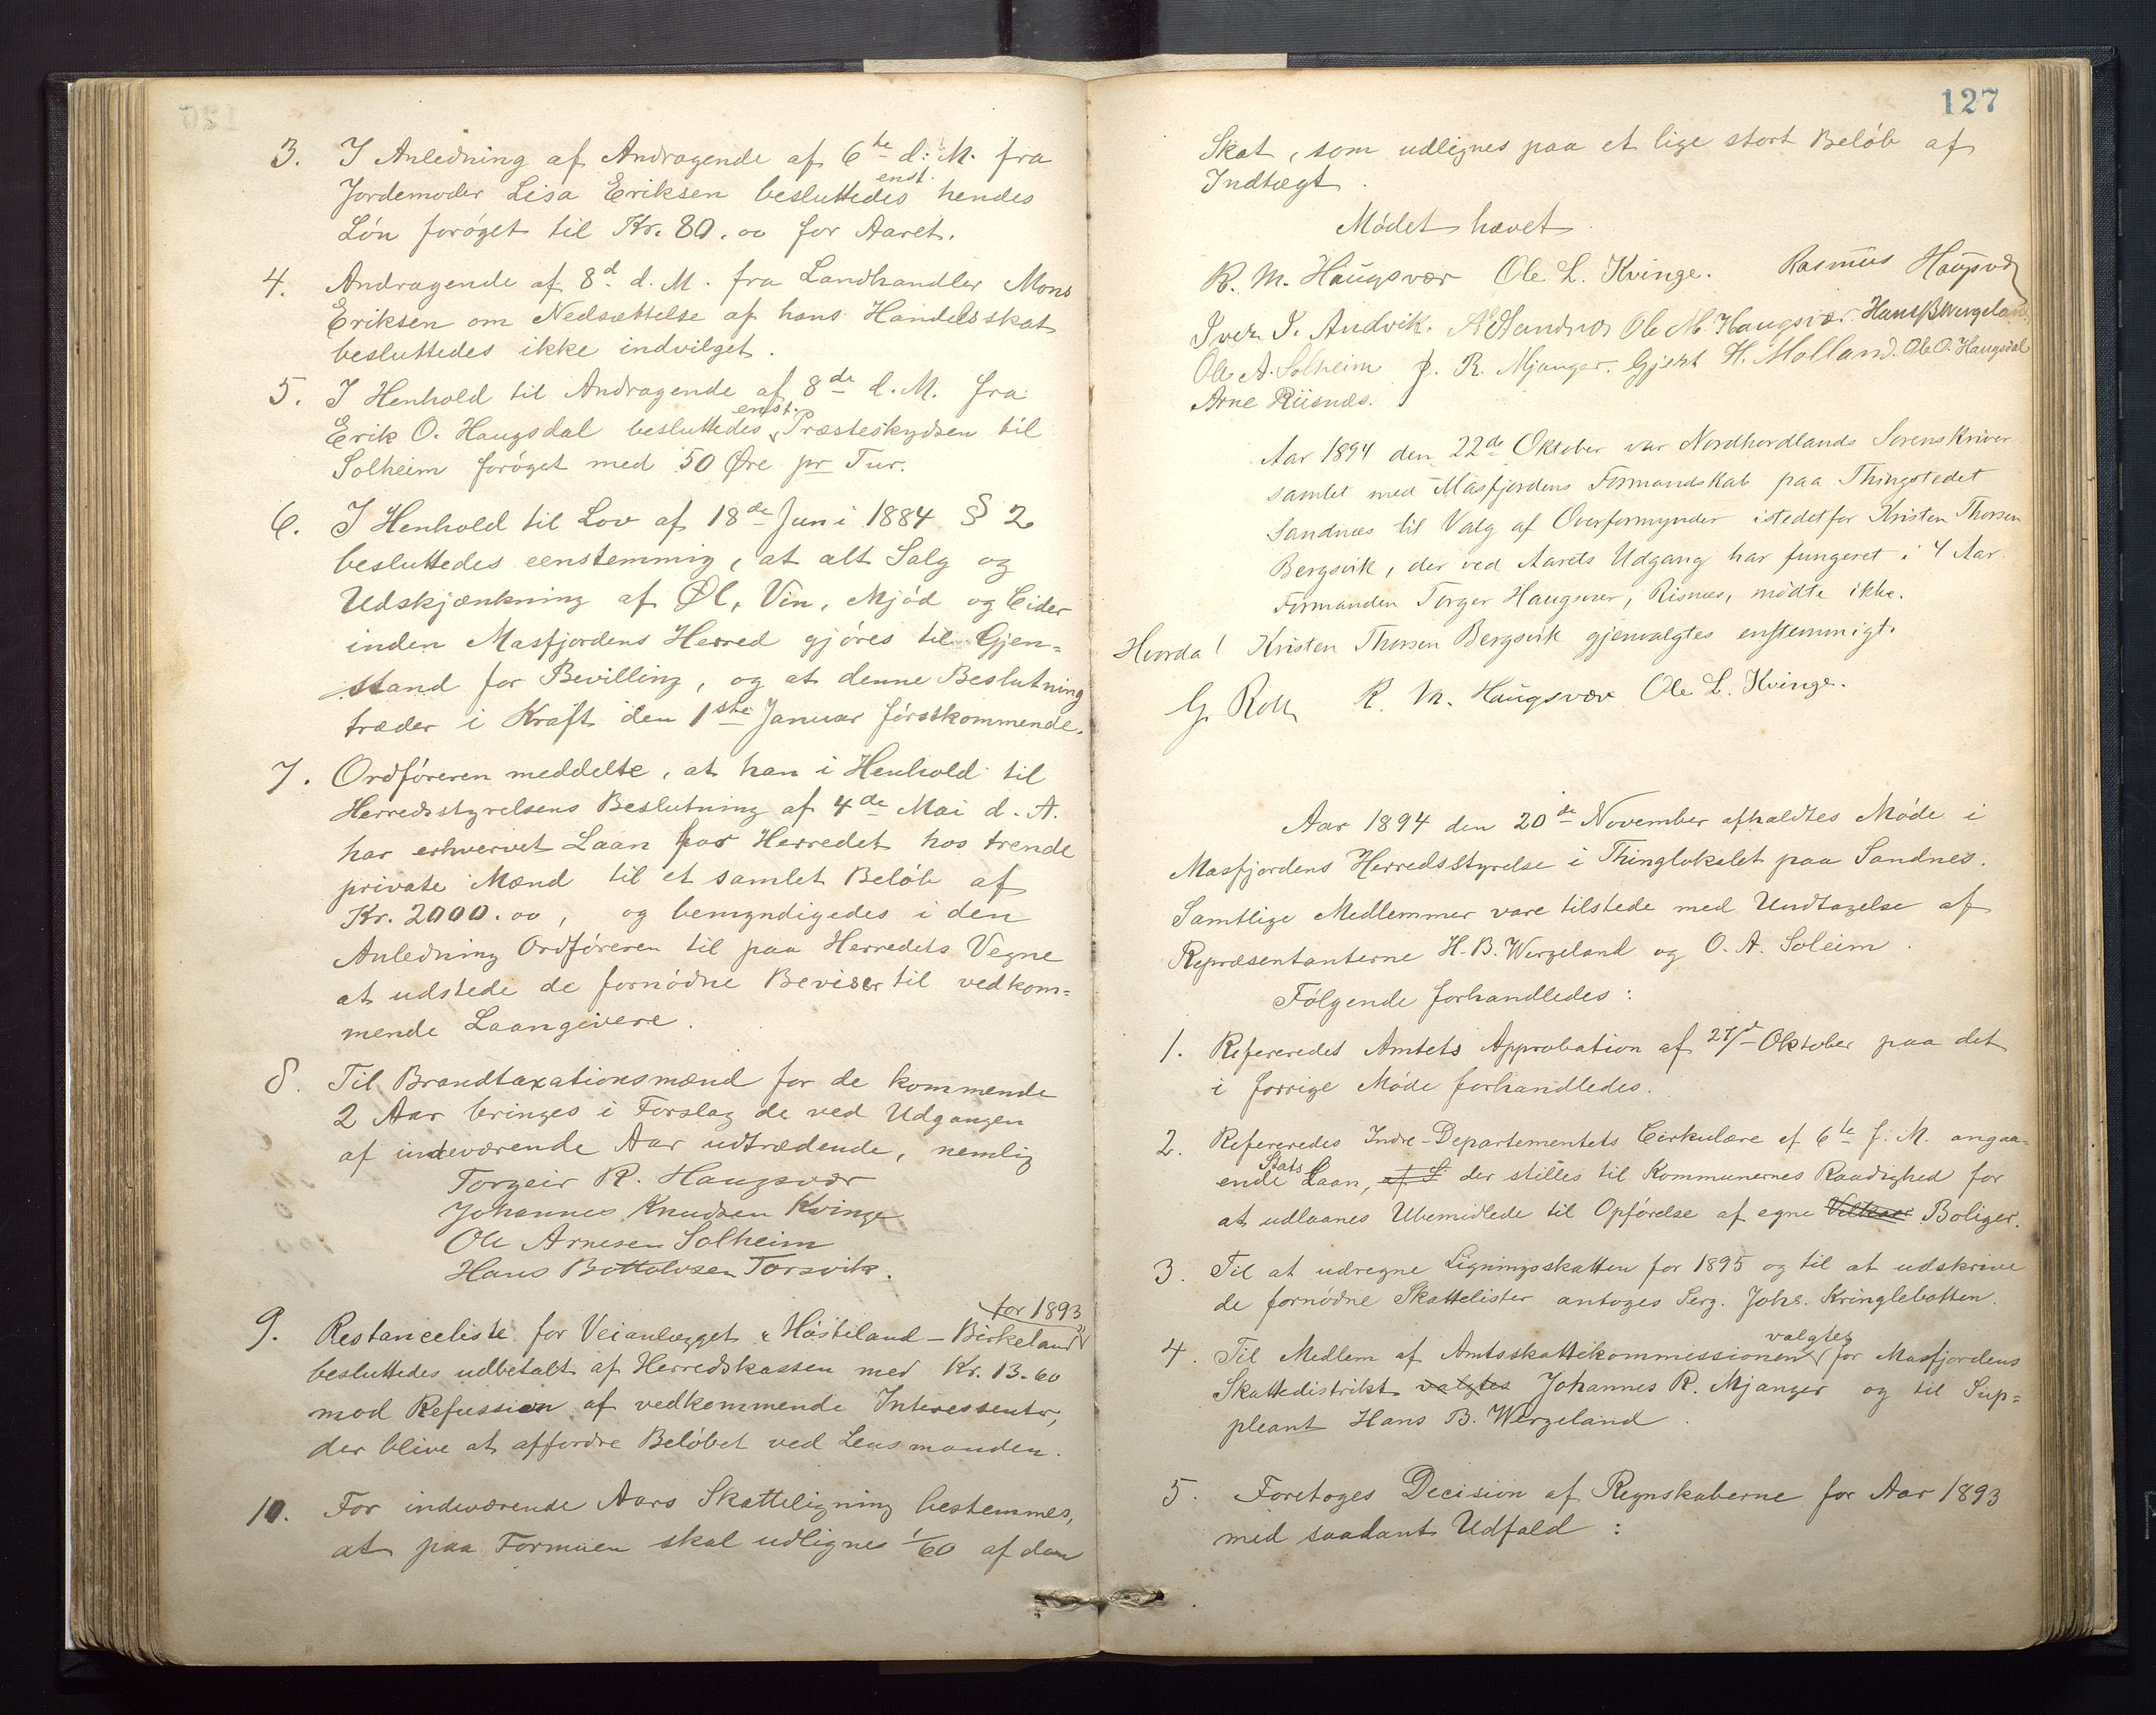 3. I Anledning af Andragende af 6te d. M. fra
Jordemoder Lisa Eriksen besluttedes enst. hendes
Løn forøget til Kr. 80.00 for Aaret.
4. Andragende af 8d. d. M. fra Landhandler Mons
Eriksen om Nedsættelse af hans Handelsskat
besluttedes ikke indvilget.
5. I Henhold til Andragende af 8de d. M. fra
Erik O. Haugsdal besluttedes enst. Præsteskydsen til
Solheim forøget med 50 Øre pr Tur.
6. I Henhold til Lov af 18de Juni 1884 § 2
besluttedes eenstemmig, at alt Salg og
Udskjænkning af Øl, Vin, Mjød og Cider
inden Masfjordens Herred gjøres til Gjen=
stand for Bevilling, og at denne Beslutning
træder i Kraft den 1ste Januar førstkommende.
7. Ordføreren meddelte, at han i Henhold til
Herredsstyrelsens Beslutning af 4de Mai d. A.
har erhvervet Laan for Herredet hos trende
private Mænd til et samlet Beløb af
Kr. 2000.00, og bemyndigedes i den
Anledning Ordføreren til paa Herredets Vegne
at udstede de fornødne Beviser til vedkom=
mende Laangivere.
8. Til Brandtaxationsmænd for de kommende
2 Aar bringes i Forslag de ved Udgangen
af indeværende Aar udtrædende, nemlig
Torgeir R. Haugsvær
Johannes Knudsen Kvinge
Ole Arnesen Solheim
Hans Bottolvsen Torsvik.
9. Restanceliste for Veianlægget "Høstiland - Birkeland" for 1893
besluttedes udbetalt af Herredskassen med Kr. 13.60
mod Refusion af vedkommende Interessenter,
der blive at affordre Beløbet ved Lensmanden.
10. For indeværende Aars Skatteligning bestemmes,
at paa Formuen skal udlignes 1/60 af den
127
Skat, som udlignes paa et lige stort Beløb af
Indtægt.
Mødet hævet.
R. M. Haugsvær Ole L. Kvinge. Rasmus Haugsvær
Iver I. Andvik. A Sandnes Ole M. Haugsvær. Hans B Wergeland.
Ole A. Solheim J. R. Mjanger. Gjert H. Molland. Ole O. Haugsdal
Arne Riisnes.
Aar 1894 den 22de Oktober var Nordhordlands Sorenskriver
samlet med Masfjordens Formandskab paa Thingstedet
Sandnæs til Valg af Overformynder istedetfor Kristen Thorsen
Bergsvik, der ved Aarets Udgang har fungeret i 4 Aar.
Formanden Torger Haugsvær, Risnæs, mødte ikke.
Hvorda! Kristen Thorsen Bergsvik gjenvalgtes enstemmigt.
G. Roll R. M. Haugsvær Ole L. Kvinge.
Aar 1894 den 20de November afholdtes Møde i
Masfjordens Herredsstyrelse i Thinglokalet paa Sandnes.
Samtlige Medlemmer vare tilstede med Undtagelse af
Repræsentanterne H. B. Wergeland og O. A. Soleim.
Følgende forhandledes:
1. Refereredes Amtets Approbation af 27/d Oktober paa det
i forrige Møde forhandledes.
2. Refereredes Indre-Departementets Cirkulære af 6te f. M. angaa=
ende Stats Laan, af S der stilles til Kommunernes Raadighed for
at udlaanes Ubemidlede til Opførelse af egne Velkaar Boliger.
3. Til at udregne Ligningsskatten for 1895 og til at udskrive
de fornødne Skattelister antoges Serg. Johs. Kringlebotten.
4. Til Medlem af Amtsskattekommissionen valgtes for Masfjordens
Skattedistrikt valgtes Johannes R. Mjanger og til Sup=
pleant Hans B. Wergeland.
5. Foretoges Decision af Regnskaberne for Aar 1893
med saadant Udfald: